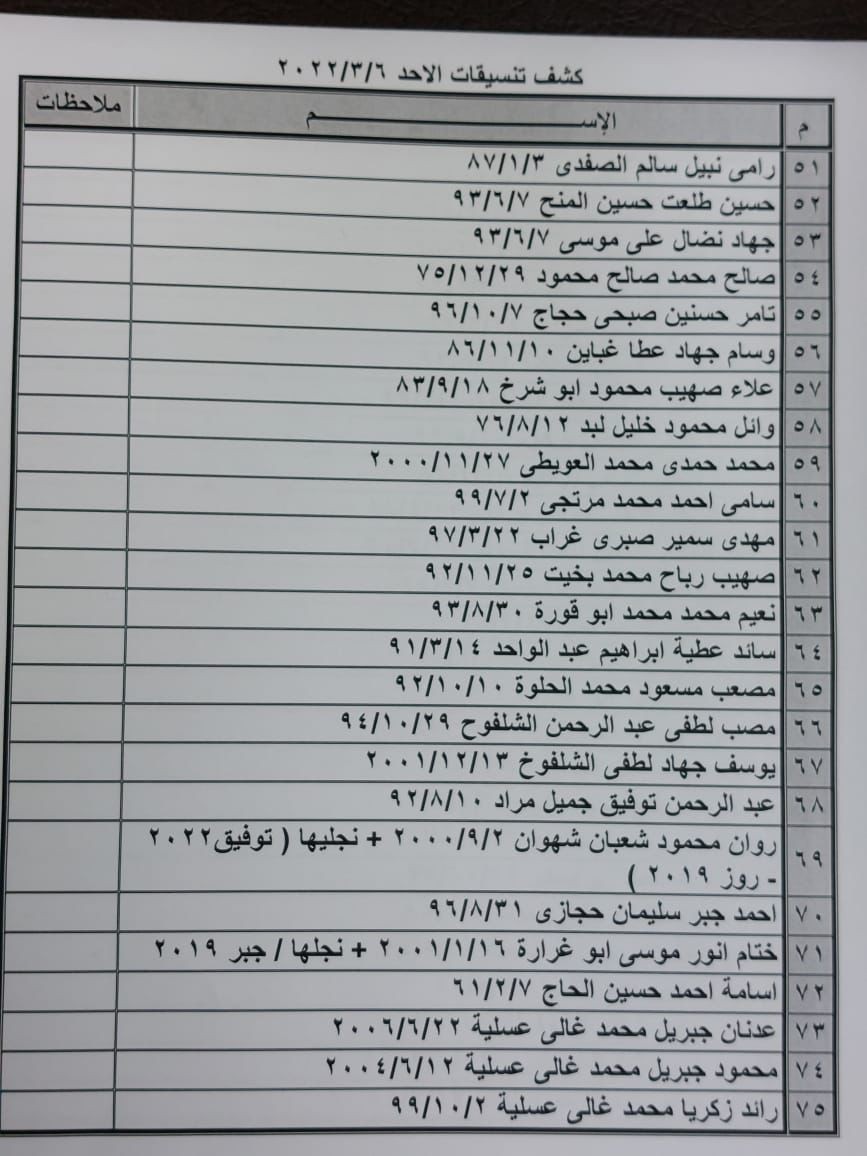 كشف تنسيقات الاحد ٢٠٢٢/٣/٦
م الإســـــــــم ملاحظات
٥١ رامى نبيل سالم الصفدى ٨٧/١/٣
٥٢ حسين طلعت حسين المنح ٩٣/٦/٧
٥٣ جهاد نضال على موسى ٩٣/٦/٧
٥٤ صالح محمد صالح محمود ٧٥/١٢/٢٩
٥٥ تامر حسنين صبحى حجاج ٩٦/١٠/٧
٥٦ وسام جهاد عطا غباين ٨٦/١١/١٠
٥٧ علاء صهيب محمود ابو شرخ ٨٣/٩/١٨
٥٨ وائل محمود خليل لبد ٧٦/٨/١٢
٥٩ محمد حمدى محمد العويطى ٢٠٠٠/١١/٢٧
٦٠ سامى احمد محمد مرتجى ٩٩/٧/٢
٦١ مهدى سمير صبرى غراب ٩٧/٣/٢٢
٦٢ صهيب رباح محمد بخيت ٩٢/١١/٢٥
٦٣ نعيم محمد محمد ابو قورة ٩٣/٨/٣٠
٦٤ سائد عطية ابراهيم عبد الواحد ٩١/٣/١٤
٦٥ مصعب مسعود محمد الحلوة ٩٢/١٠/١٠
٦٦ مصب لطفى عبد الرحمن الشلفوح ٩٤/١٠/٢٩
٦٧ يوسف جهاد لطفى الشلفوخ ٢٠٠١/١٢/١٣
٦٨ عبد الرحمن توفيق جميل مراد ٩٢/٨/١٠
٦٩ روان محمود شعبان شهوان ٢٠٠٠/٩/٢ + نجليها ( توفيق٢٠٢٢
- روز ٢٠١٩ )
٧٠ احمد جبر سليمان حجازى ٩٦/٨/٣١
٧١ ختام انور موسى ابو غرارة ٢٠٠١/١/١٦ + نجلها / جبر ٢٠١٩
٧٢ اسامة احمد حسين الحاج ٦١/٢/٧
٧٣ عدنان جبريل محمد غالى عسلية ٢٠٠٦/٦/٢٢
٧٤ محمود جبريل محمد غالى عسلية ٢٠٠٤/٦/١٢
٧٥ رائد زكريا محمد غالى عسلية ٩٩/١٠/٢